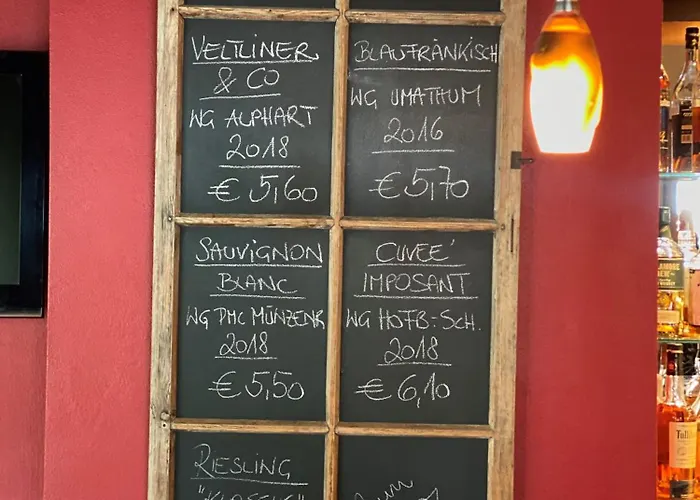 VELTLINER
& CO
WG ALPHART
2018
€ 5,60
BLAUFRÄNKISCH
WG UMATHUM
2016
€ 5,70
SAUVIGNON
BLANC
WG PMC MÜNZENR
2018
€ 5,50
CUVEÉ
IMPOSANT
WG HOFB.-SCH.
2018
€ 6,10
RIESLING